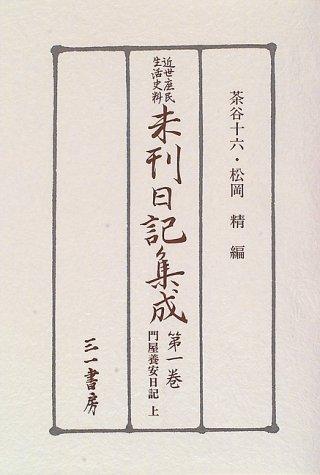 茶谷十六・松岡 精 編
近世庶民
生活史料
未刊日記集成 第一巻
門屋養安日記 上
三一書房